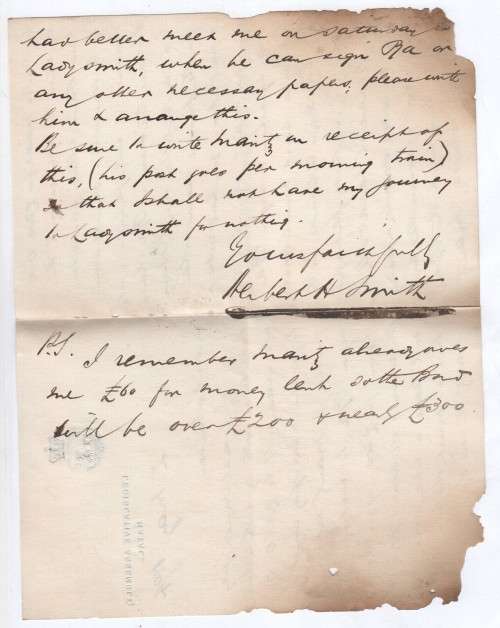 had better meet me on Saturday in
Ladysmith, when he can sign Pa or
any other necessary papers, please write
him & arrange this.
Be sure to write Maritz on receipt of
this, (his post goes per morning train)
so that I shall not have my journey
to Ladysmith for nothing.
Yours faithfully
Herbert H Smith
P.S. I remember Maritz already owes
me £60 for money lent so the Bond
will be over £200 & nearly £300.